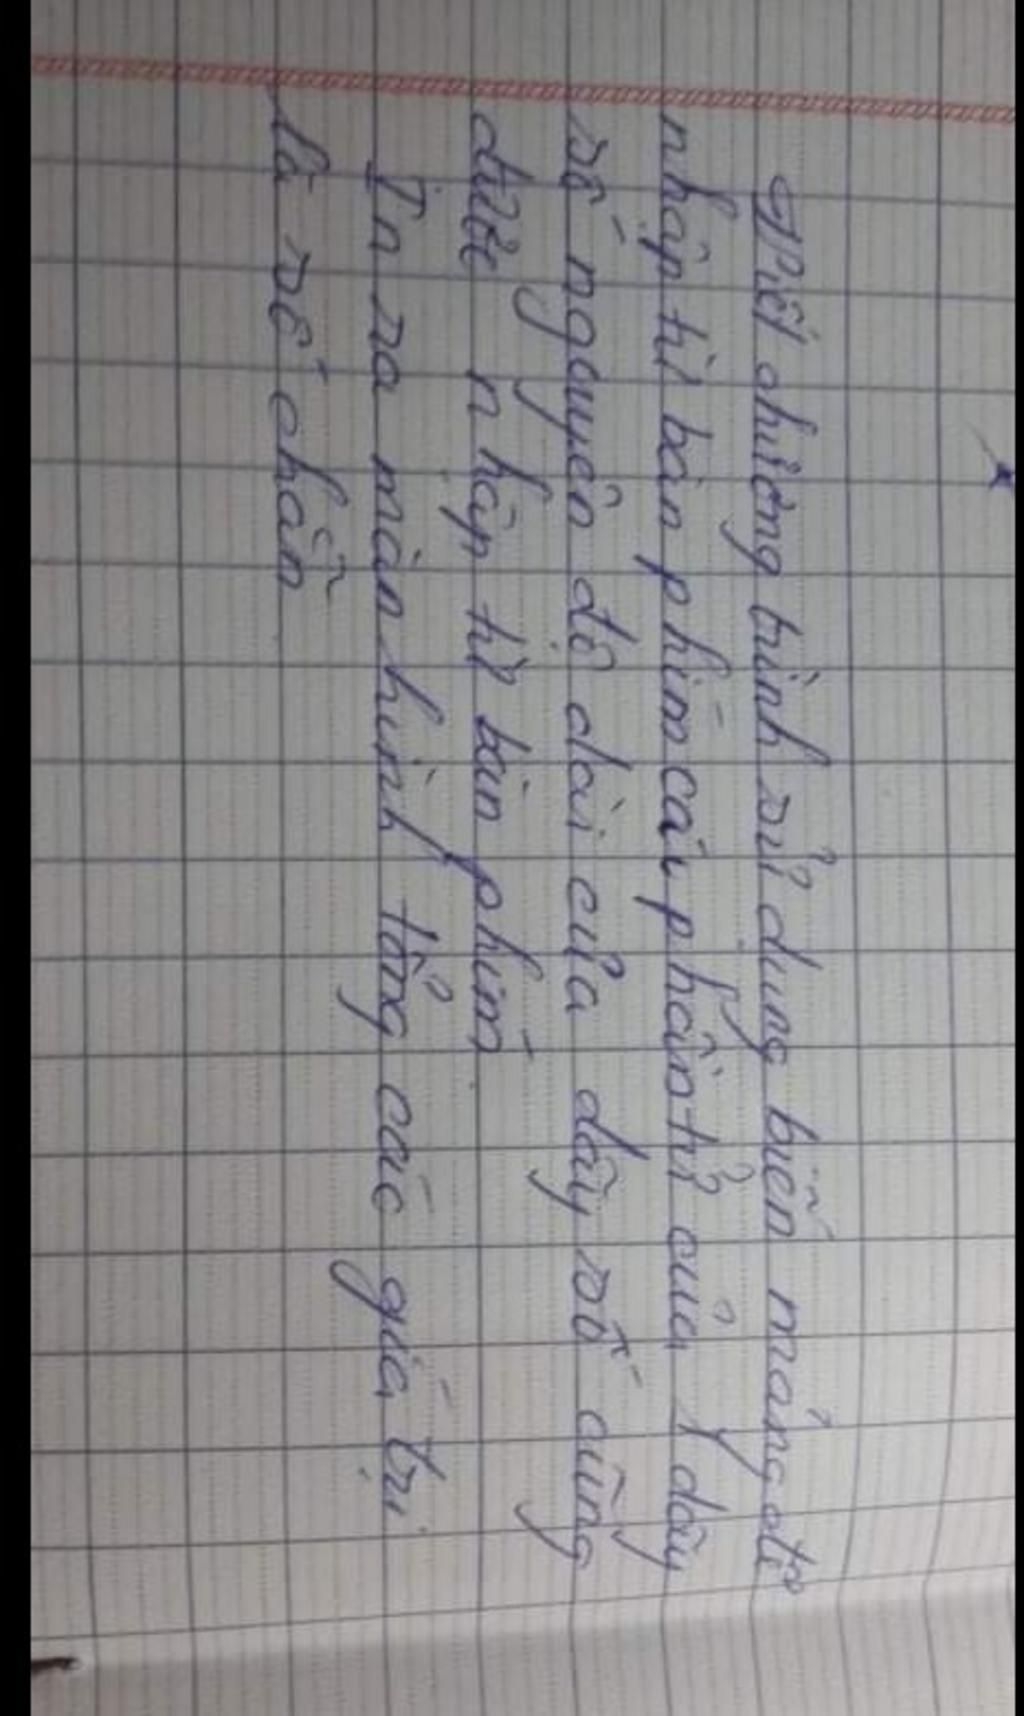 Viết chương trình sử dụng biến mảng để
nhập từ bàn phím các phần tử của 1 dãy
số nguyên độ dài của dãy số cũng
được nhập từ bàn phím.
In ra màn hình tổng các giá trị
là số chẵn